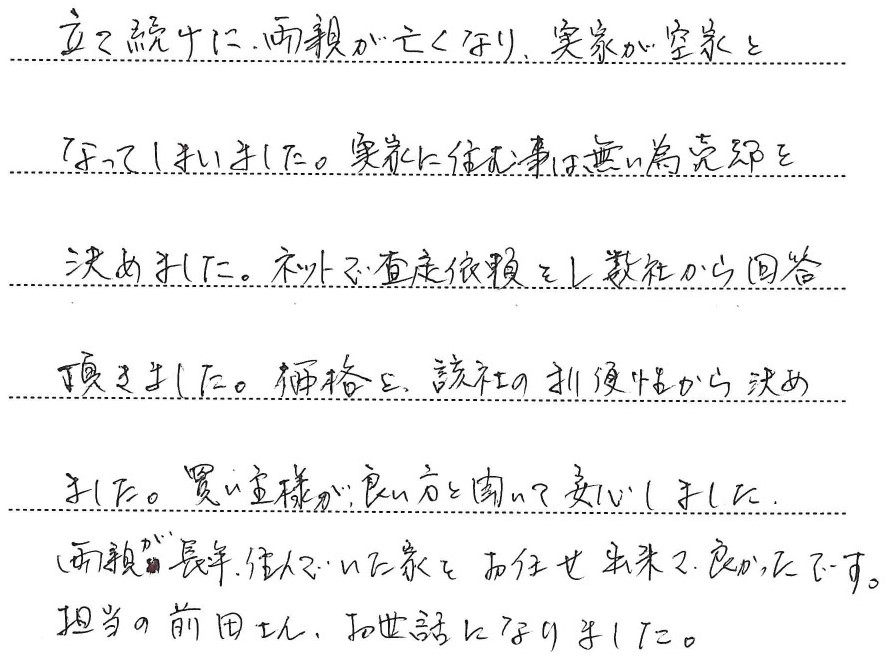 立て続けに、両親が亡くなり、実家が空家と
なってしまいました。実家に住む事は無い為売却を
決めました。ネットで査定依頼をし数社から回答
頂きました。価格と、該社の利便性から決め
ました。買い主様が、良い方と聞いて安心しました.
両親が長年、住んでいた家をお任せ出来て、良かったです。
担当の前田さん、お世話になりました。